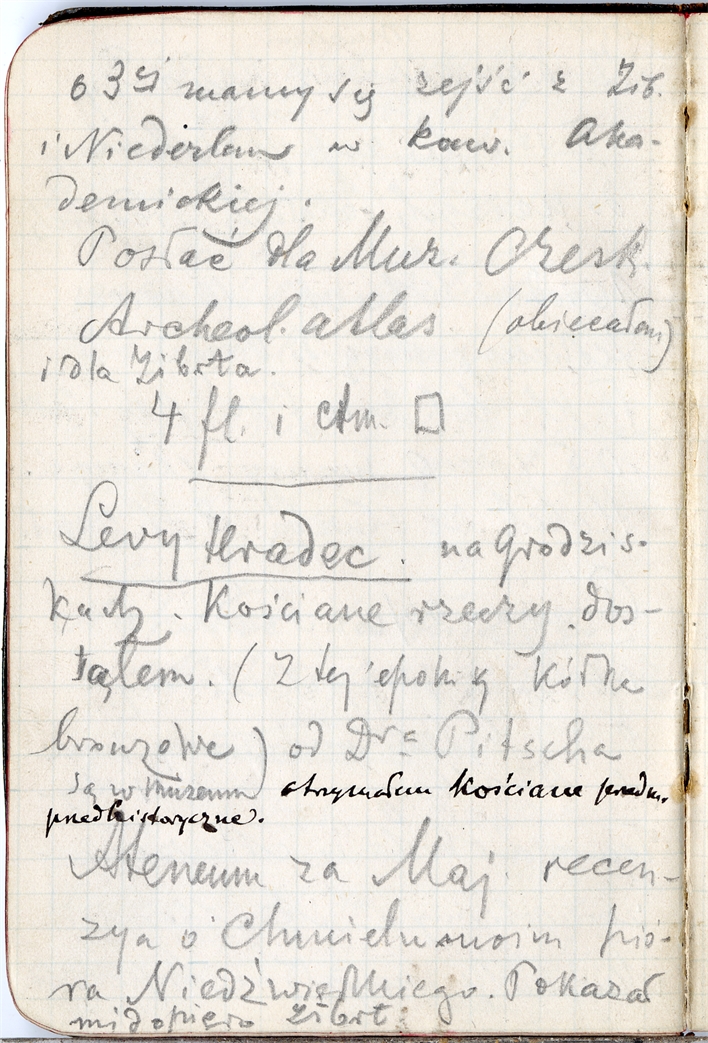 o 3ej mamy się zejść z Zib.
i Niederlem w kaw. Aka-
demickiej.
Posłać dla Muz. Czesk.
Archeol. atlas (obiecałem)
i dla Zibrta.
4 fl. i ctm. □
Levy Hradec. na Grodzis-
kach. Kościane rzeczy dos-
tałem. (Z tej epoki są kółka
bronzowe) od Dra Pitscha
są w muzeum otrzymałem kościane przedm.
predhistoryczne.
Ateneum za Maj. recen-
zya o Chmielu moim pió-
ra Niedźwiedzkiego. Pokazał
mi dopiero Zibrt.